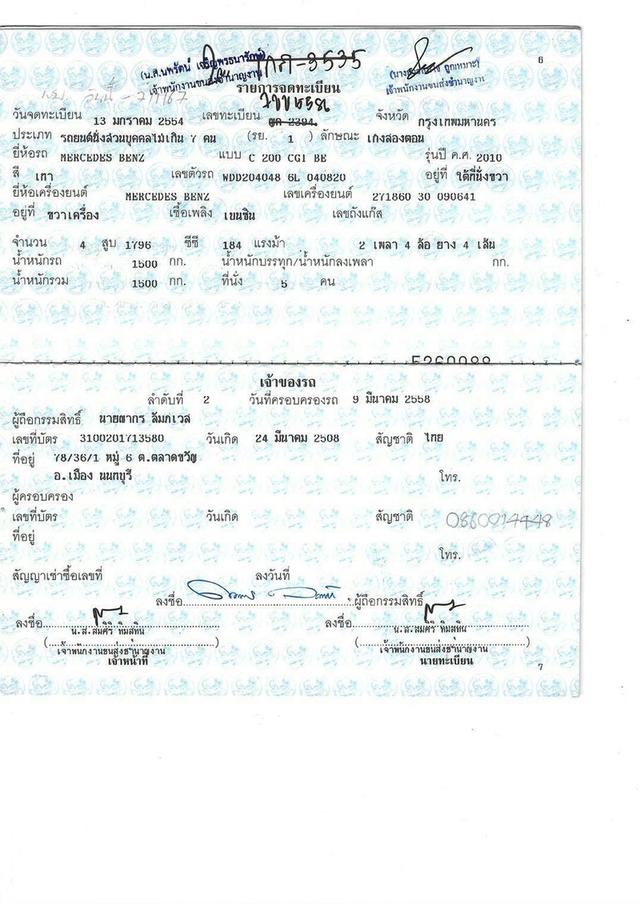 6
(น.ส.นพรัตน์ เจริญพรธนารักษ์)
เจ้าพนักงานขนส่งชำนาญงาน
กค-3535
เจ้าพนักงานขนส่งชำนาญงาน
รายการจดทะเบียน
วันจดทะเบียน 13 มกราคม 2554 เลขทะเบียน ฎค 2394. จังหวัด กรุงเทพมหานคร
ประเภท รถยนต์นั่งส่วนบุคคลไม่เกิน 7 คน (รย. 1 ) ลักษณะ เก๋งสองตอน
ยี่ห้อรถ MERCEDES BENZ แบบ C 200 CGI BE รุ่นปี ค.ศ. 2010
สี เทา เลขตัวรถ WDD204048 6L 040820 อยู่ที่ ใต้ที่นั่งขวา
ยี่ห้อเครื่องยนต์ MERCEDES BENZ เลขเครื่องยนต์ 271860 30 090641
อยู่ที่ ขวาเครื่อง เชื้อเพลิง เบนซิน เลขถังแก๊ส
จำนวน 4 สูบ 1796 ซีซี 184 แรงม้า 2 เพลา 4 ล้อ ยาง 4 เส้น
น้ำหนักรถ 1500 กก. น้ำหนักบรรทุก/น้ำหนักลงเพลา กก.
น้ำหนักรวม 1500 กก. ที่นั่ง 5 คน
5260088
เจ้าของรถ
ลำดับที่ 2 วันที่ครอบครองรถ 9 มีนาคม 2558
ผู้ถือกรรมสิทธิ์
เลขที่บัตร 3100201713580 วันเกิด 24 มีนาคม 2508 สัญชาติ ไทย
ที่อยู่ 78/36/1 หมู่ 6 ต.ตลาดขวัญ
อ.เมือง นนทบุรี โทร.
ผู้ครอบครอง
เลขที่บัตร วันเกิด สัญชาติ 0860914448
ที่อยู่
โทร.
สัญญาเช่าซื้อเลขที่ ลงวันที่
ลงชื่อ ผู้ถือกรรมสิทธิ์
ลงชื่อ ลงชื่อ
น.ส.สมศิริ ทิมสุทิน น.ส.สมศิริ ทิมสุทิน
เจ้าพนักงานขนส่งชำนาญงาน เจ้าพนักงานขนส่งชำนาญงาน
เจ้าหน้าที่ นายทะเบียน
7